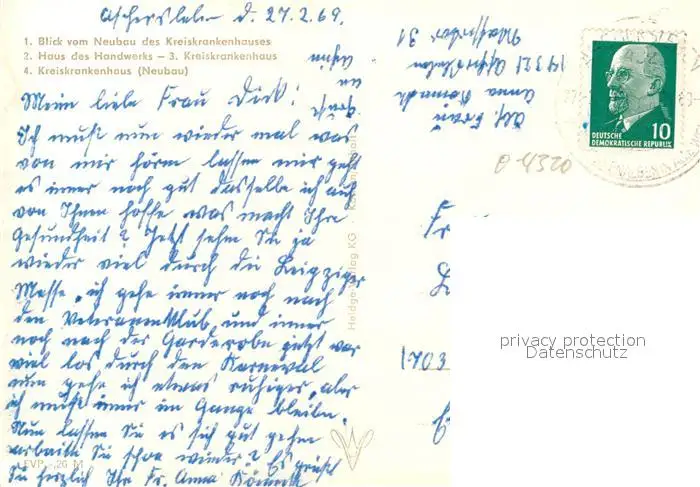 Aschersleben d. 27.2.69.
1. Blick vom Neubau des Kreiskrankenhauses
2. Haus des Handwerks – 3. Kreiskrankenhaus
4. Kreiskrankenhaus (Neubau)
Mein liebe Frau Dirk!
Ich muß nun wieder mal was
von mir hören lassen mir geht
es immer noch gut dasselbe ich auch
von Ihnen hoffe was macht Ihre
Gesundheit? Jetzt sehn Sie ja
wieder viel durch die Leipziger
Messe, ich gehe immer noch nach
den Veteranenklub und immer
noch nach der Garderobe jetzt war
viel los durch den Karneval
nun gehe ich etwas ruhiger, aber
ich muß immer im Gange bleiben.
Nun lassen Sie es sich gut gehn
arbeiten Sie schon wieder? Es grüßt
Sie herzlich Ihr Fr. Anna
EVP -,20 M
Verlag KG
Abs. Frau
Anna
4321 Aschersleben
31
0 4320
DEUTSCHE
DEMOKRATISCHE REPUBLIK
10
Fr
1703
privacy protection
Datenschutz